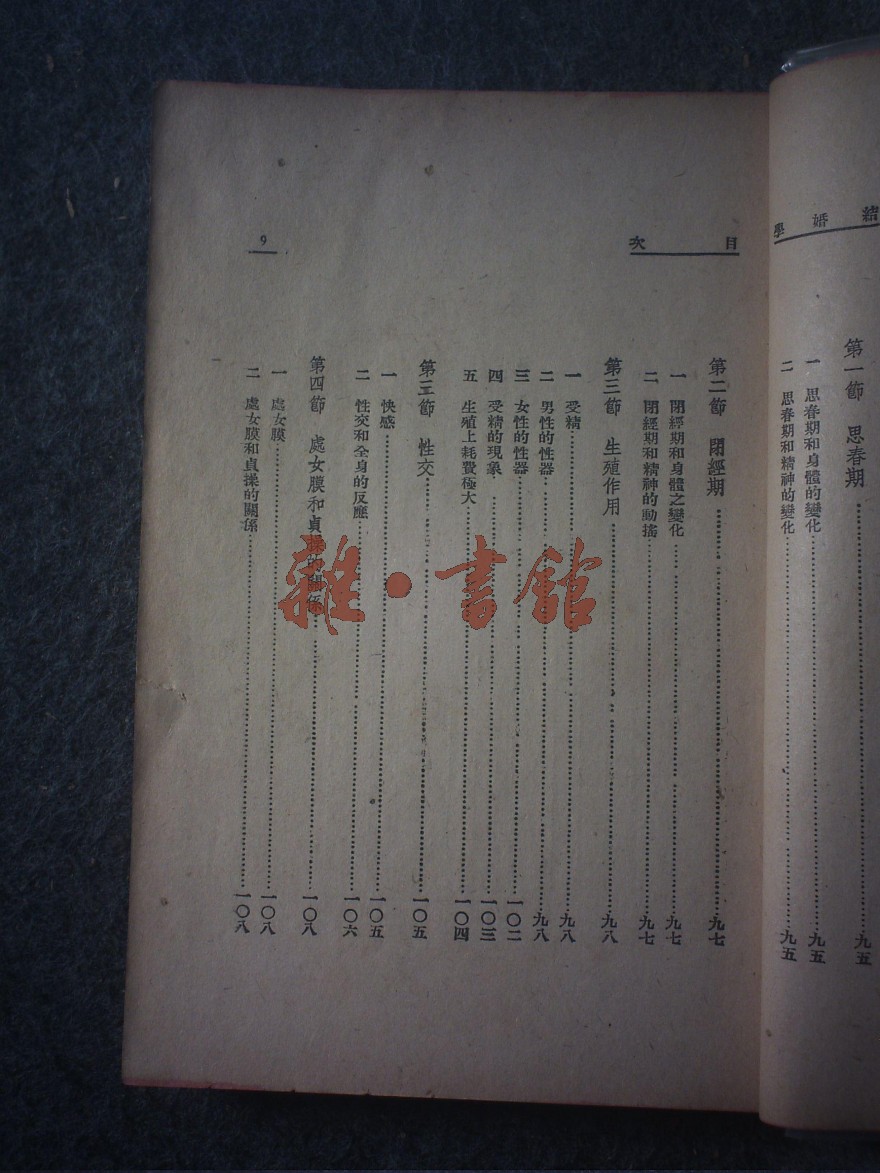 結婚學
第一節 思春期……九五
一 思春期和身體的變化……九五
二 思春期和精神的變化……九五
目次
第二節 閉經期……九七
一 閉經期和身體之變化……九七
二 閉經期和精神的動搖……九七
第三節 生殖作用……九八
一 受精……九八
二 男性的性器……九八
三 女性的性器……一〇二
四 受精的現象……一〇三
五 生殖上耗費極大……一〇四
第三節 性交……一〇五
一 快感……一〇五
二 性交和全身的反應……一〇六
第四節 處女膜和貞操的關係……一〇八
一 處女膜……一〇八
二 處女膜和貞操的關係……一〇八
9
雜·書館